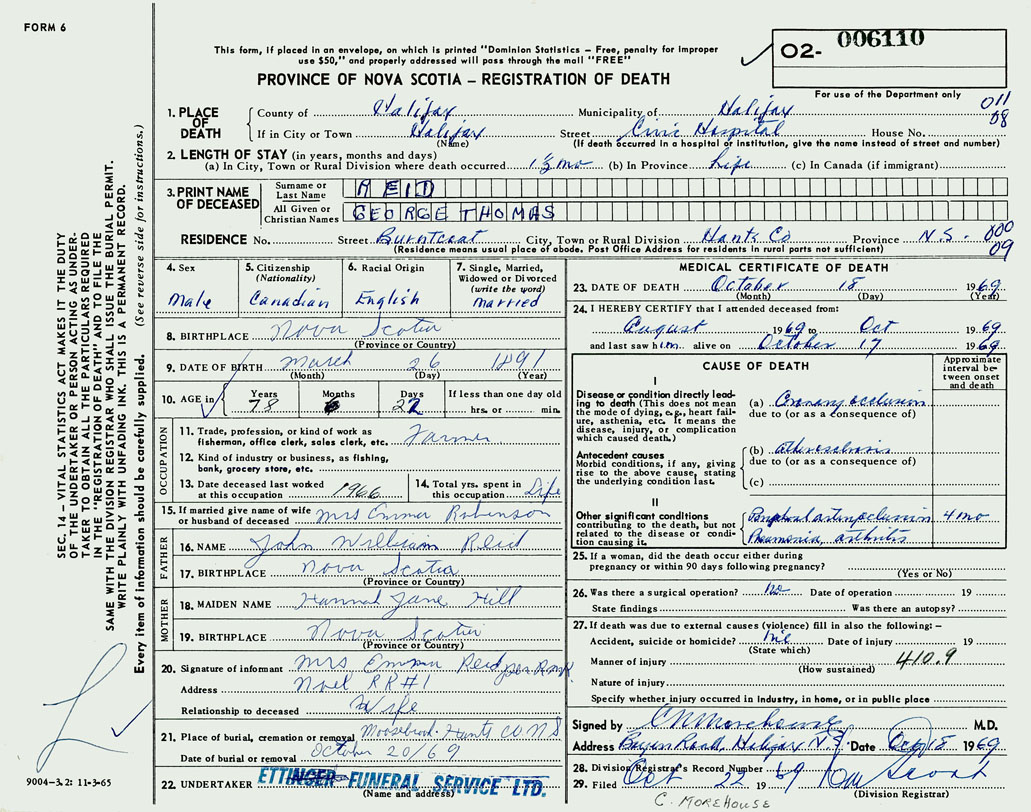 FORM 6
This form, if placed in an envelope, on which is printed "Dominion Statistics – Free, penalty for improper
use $50," and properly addressed will pass through the mail "FREE"
O2- 006110
PROVINCE OF NOVA SCOTIA – REGISTRATION OF DEATH
For use of the Department only
011
08
1. PLACE OF DEATH
County of Halifax Municipality of Halifax
If in City or Town Halifax Street Civic Hospital House No.
(Name) (If death occurred in a hospital or institution, give the name instead of street and number)
2. LENGTH OF STAY (in years, months and days)
(a) In City, Town or Rural Division where death occurred 1½ mo (b) In Province Life (c) In Canada (if immigrant)
3. PRINT NAME OF DECEASED
Surname or Last Name REID
All Given or Christian Names GEORGE THOMAS
RESIDENCE No. Street Burntcoat City, Town or Rural Division Hants Co Province N.S. 000
(Residence means usual place of abode. Post Office Address for residents in rural parts not sufficient) 09
4. Sex Male
5. Citizenship (Nationality) Canadian
6. Racial Origin English
7. Single, Married, Widowed or Divorced (write the word) married
8. BIRTHPLACE Nova Scotia
(Province or Country)
9. DATE OF BIRTH March 26 1891
(Month) (Day) (Year)
10. AGE in Years 78 Months 6 Days 22 If less than one day old hrs. or min.
OCCUPATION
11. Trade, profession, or kind of work as
fisherman, office clerk, sales clerk, etc. Farmer
12. Kind of industry or business, as fishing,
bank, grocery store, etc.
13. Date deceased last worked
at this occupation 1966
14. Total yrs. spent in
this occupation Life
15. If married give name of wife
or husband of deceased Mrs Emma Robinson
FATHER
16. NAME John William Reid
17. BIRTHPLACE Nova Scotia
(Province or Country)
MOTHER
18. MAIDEN NAME Hannah Jane Hill
19. BIRTHPLACE Nova Scotia
(Province or Country)
20. Signature of informant Mrs Emma Reid per
Address Noel RR#1
Relationship to deceased Wife
21. Place of burial, cremation or removal Moosebrook Hants CO NS
Date of burial or removal October 20/69
22. UNDERTAKER ETTINGER FUNERAL SERVICE LTD.
(Name and address)
MEDICAL CERTIFICATE OF DEATH
23. DATE OF DEATH October 18 1969
(Month) (Day) (Year)
24. I HEREBY CERTIFY that I attended deceased from:
August 1969 to Oct 1969
and last saw him alive on October 17 1969
CAUSE OF DEATH
Approximate interval between onset and death
I
Disease or condition directly leading
to death (This does not mean
the mode of dying, e.g., heart failure,
asthenia, etc. It means the
disease, injury, or complication
which caused death.)
(a) Coronary occlusion
due to (or as a consequence of)
Antecedent causes
Morbid conditions, if any, giving
rise to the above cause, stating
the underlying condition last.
(b) atherosclerosis
due to (or as a consequence of)
(c)
II
Other significant conditions
contributing to the death, but not
related to the disease or condition
causing it.
Peripheral 4 mo
Pneumonia, arthritis
25. If a woman, did the death occur either during
pregnancy or within 90 days following pregnancy?
(Yes or No)
26. Was there a surgical operation? no Date of operation 19
State findings Was there an autopsy?
27. If death was due to external causes (violence) fill in also the following:–
Accident, suicide or homicide? Date of injury 19
(State which)
Manner of injury 410.9
(How sustained)
Nature of injury
Specify whether injury occurred in Industry, in home, or in public place
Signed by C Morehouse M.D.
Address Road, Halifax N.S. Date Oct 18 1969
28. Division Registrar's Record Number
29. Filed Oct 22 1969
(Division Registrar)
C. MOREHOUSE
SEC. 14 – VITAL STATISTICS ACT MAKES IT THE DUTY
OF THE UNDERTAKER OR PERSON ACTING AS UNDERTAKER
TO OBTAIN ALL THE PARTICULARS REQUIRED
IN THE "REGISTRATION OF DEATH" AND TO FILE THE
SAME WITH THE DIVISION REGISTRAR WHO SHALL ISSUE THE BURIAL PERMIT.
WRITE PLAINLY WITH UNFADING INK. THIS IS A PERMANENT RECORD.
Every item of information should be carefully supplied. (See reverse side for instructions.)
9004-3.2: 11-3-65